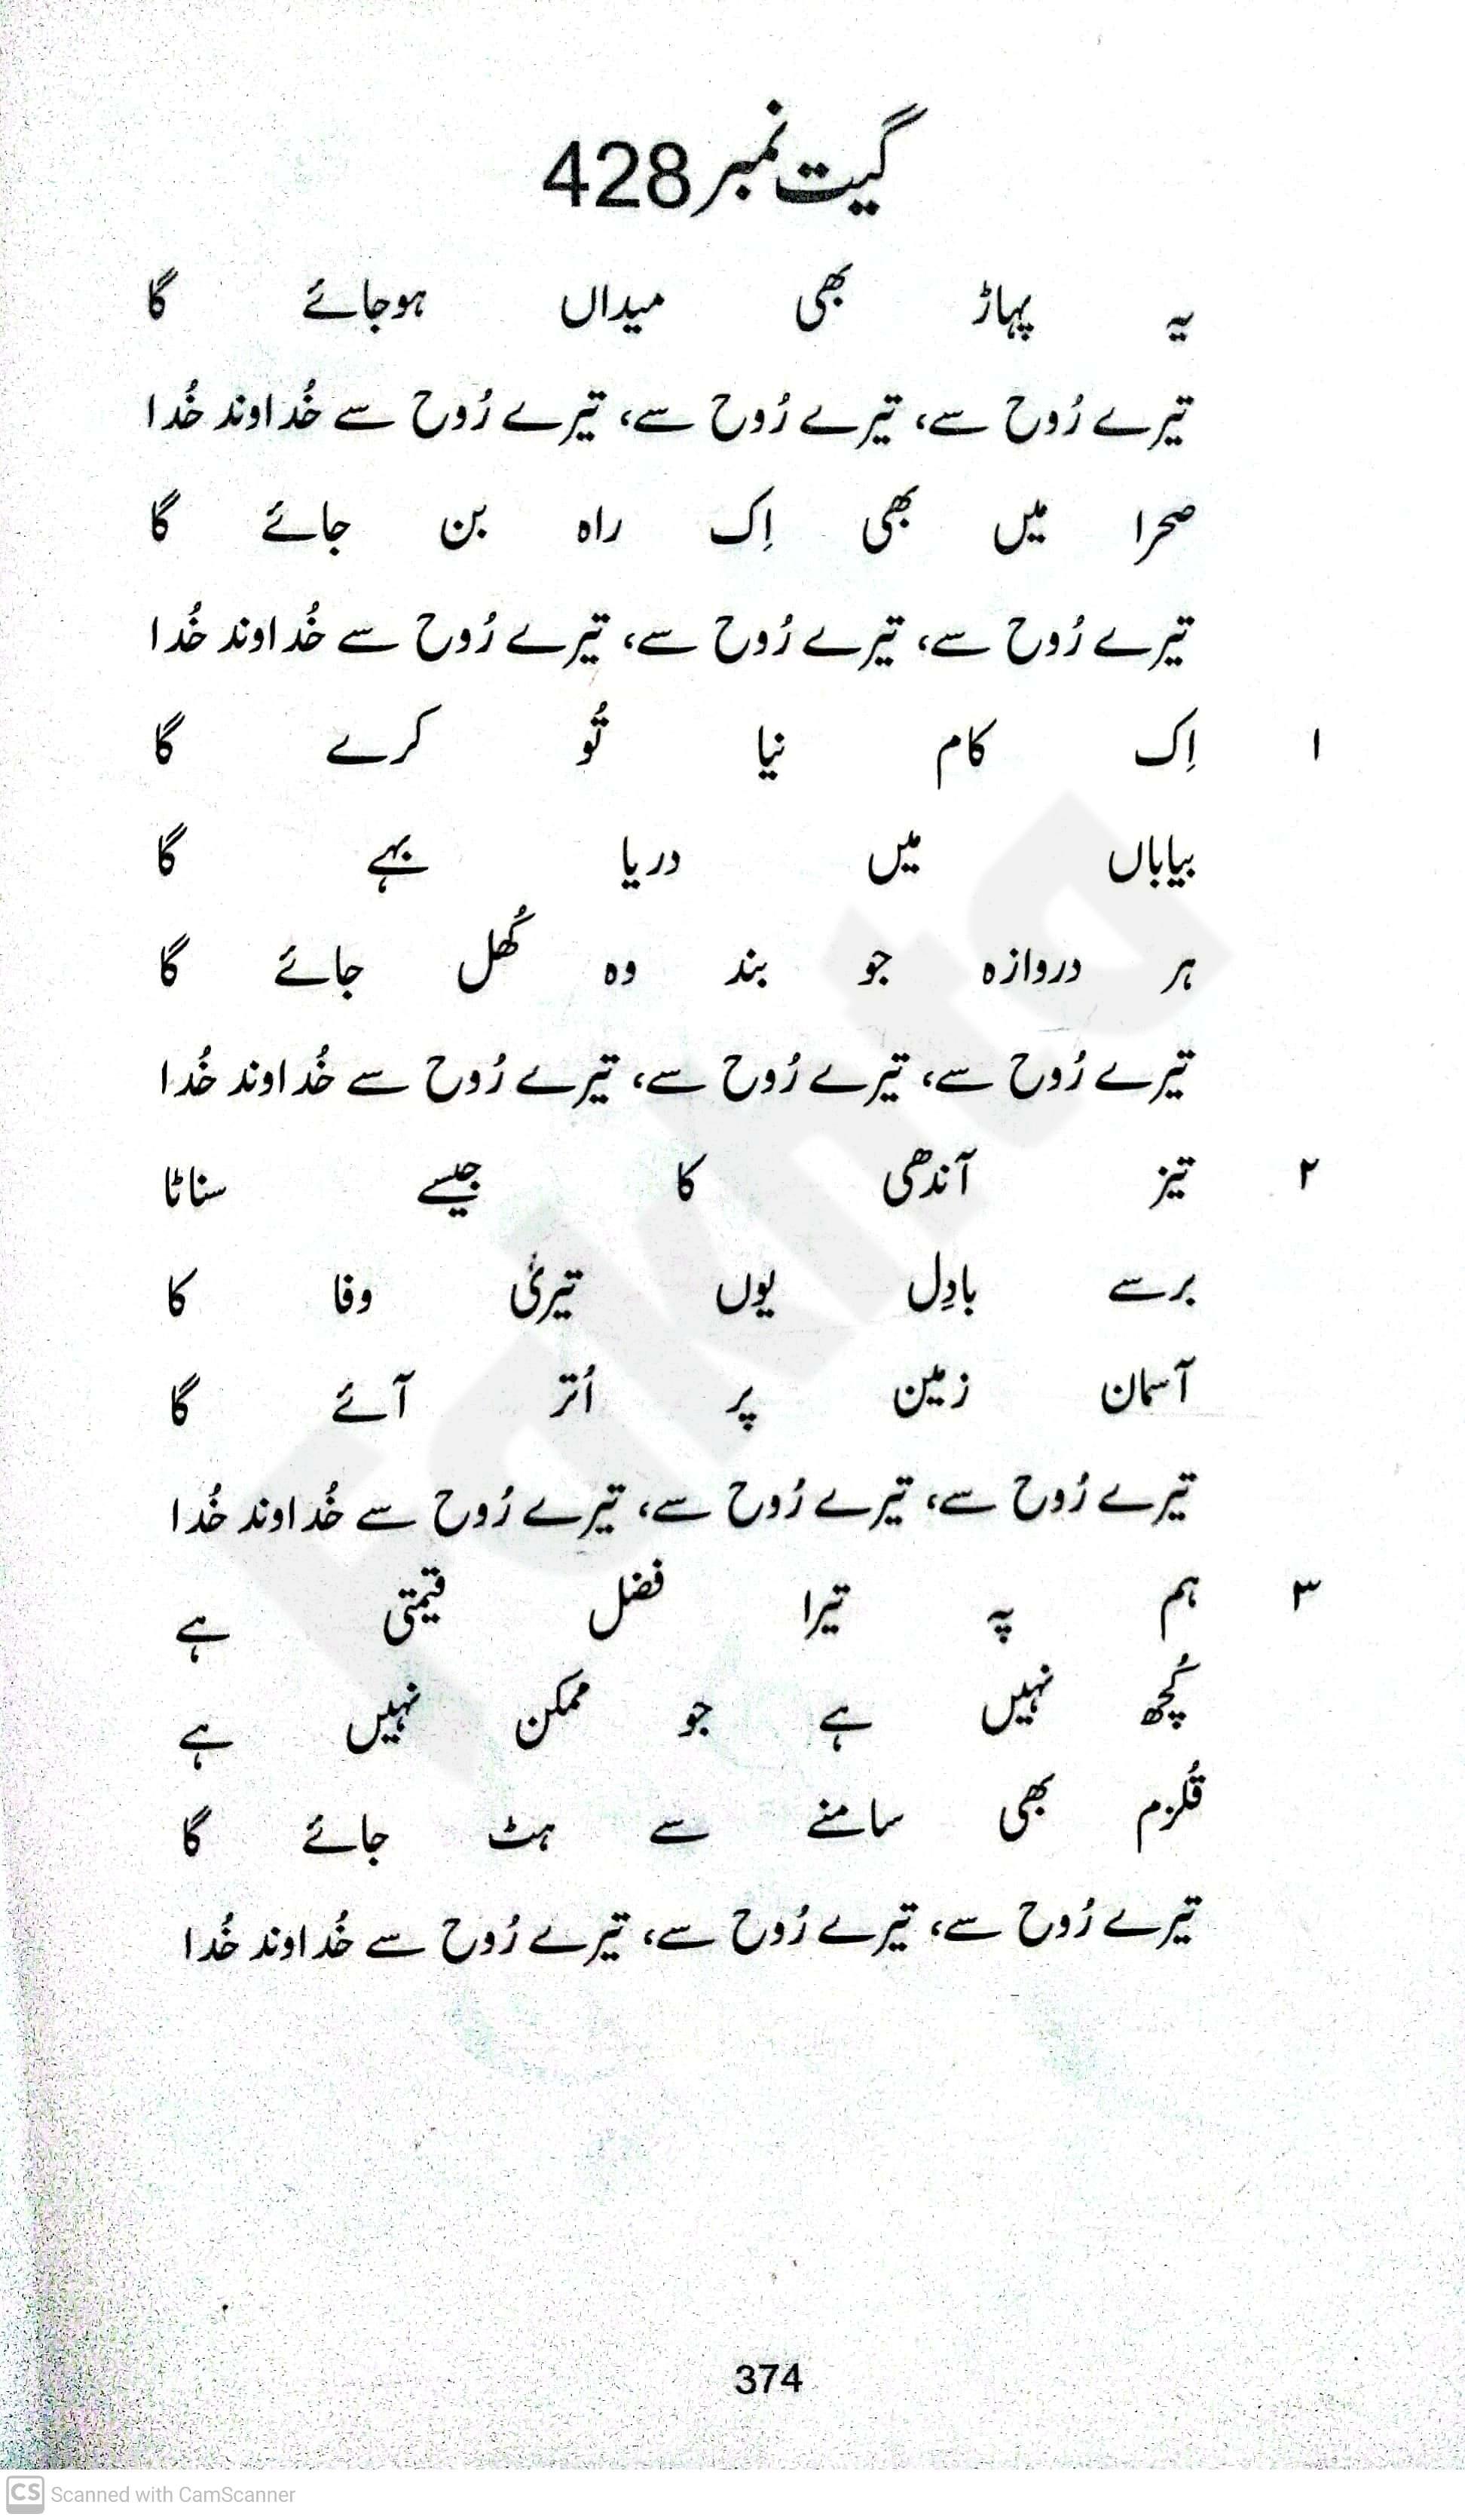 گیت نمبر 428
یہ پہاڑ بھی میداں ہوجائے گا
تیرے رُوح سے، تیرے رُوح سے، تیرے رُوح سے خُداوند خُدا
صحرا میں بھی اِک راہ بن جائے گا
تیرے رُوح سے، تیرے رُوح سے، تیرے رُوح سے خُداوند خُدا
۱ اِک کام نیا تُو کرے گا
بیاباں میں دریا بہے گا
ہر دروازہ جو بند وہ کُھل جائے گا
تیرے رُوح سے، تیرے رُوح سے، تیرے رُوح سے خُداوند خُدا
۲ تیز آندھی کا جیسے سناٹا
برسے بادِل یوں تیریٰ وفا کا
آسمان زمین پر اُتر آئے گا
تیرے رُوح سے، تیرے رُوح سے، تیرے رُوح سے خُداوند خُدا
۳ ہم پہ تیرا فضل قیمتی ہے
کُچھ نہیں ہے جو ممکن نہیں ہے
قُلزم بھی سامنے سے ہٹ جائے گا
تیرے رُوح سے، تیرے رُوح سے، تیرے رُوح سے خُداوند خُدا
Fakhta
374
CS Scanned with CamScanner